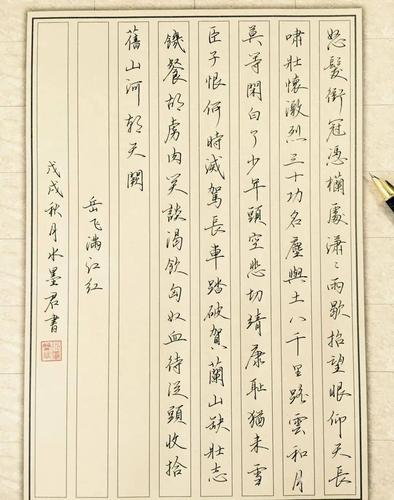 怒髮衝冠憑欄處瀟〻雨歇抬望眼仰天長
嘯壯懷激烈三十功名塵與土八千里路雲和月
莫等閑白了少年頭空悲切靖康恥猶未雪
臣子恨何時滅駕長車踏破賀蘭山缺壯志
饑餐胡虜肉笑談渴飲匈奴血待從頭收拾
舊山河朝天闕
岳飞滿江红
戊戌秋月水墨君書